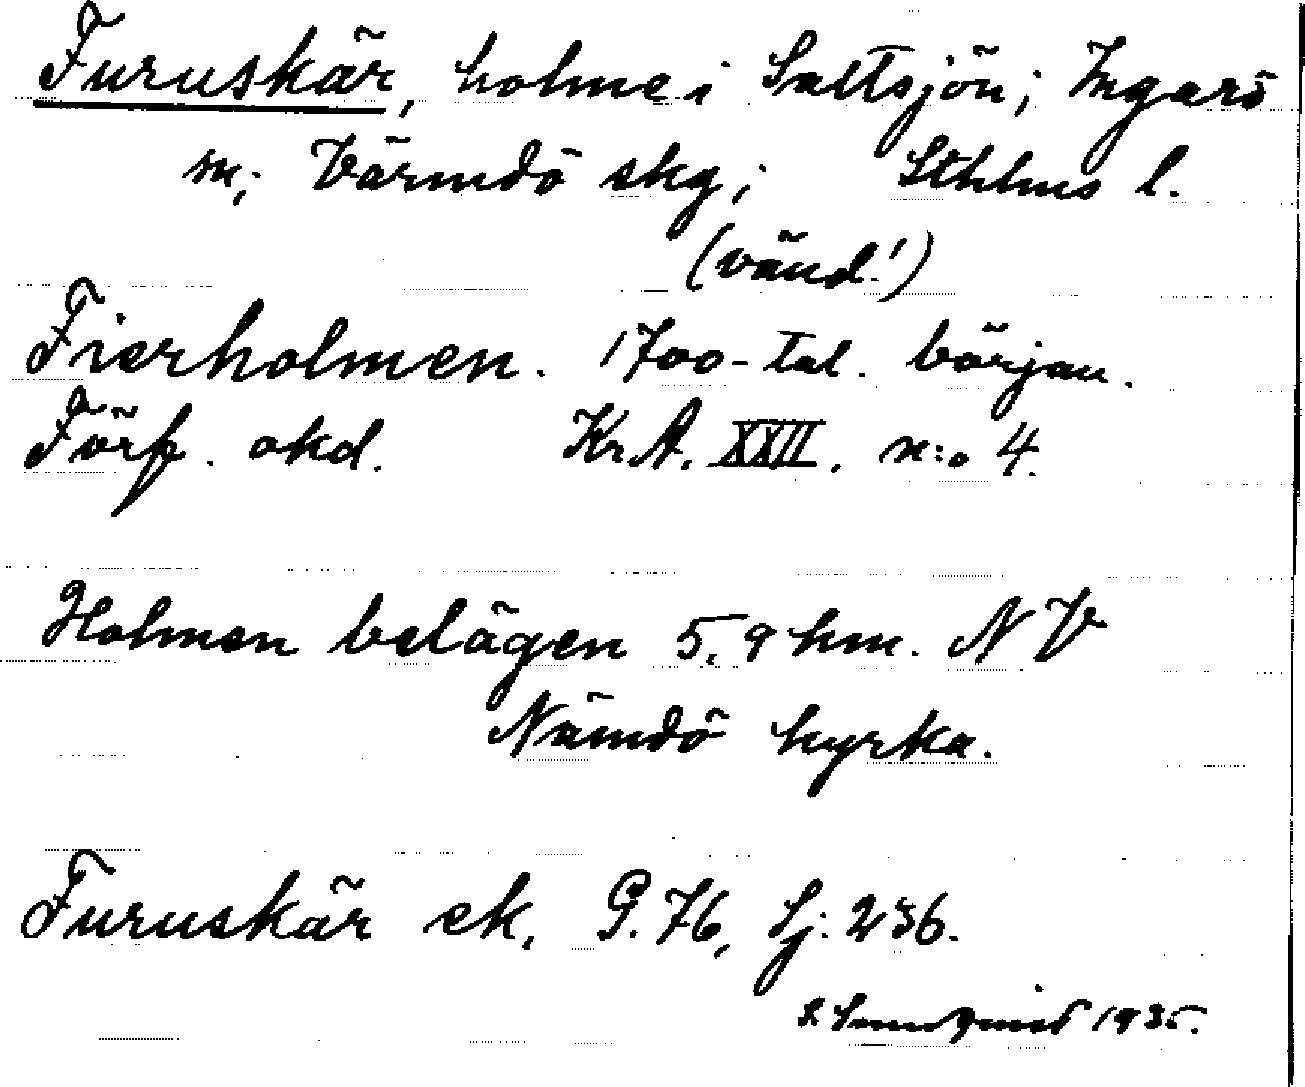 Furuskär, holme i Saltsjön; Ingarö
sn; Värmdö skg; Sthlms l.
(vänd!)
Fierholmen. 1700-tal. början.
Förf. okd. Kr. A. XXII. n:o 4.
Holmen belägen 5,9 km. NV
Nämdö kyrka.
Furuskär ek. G. 76, Sj: 236.
1935.